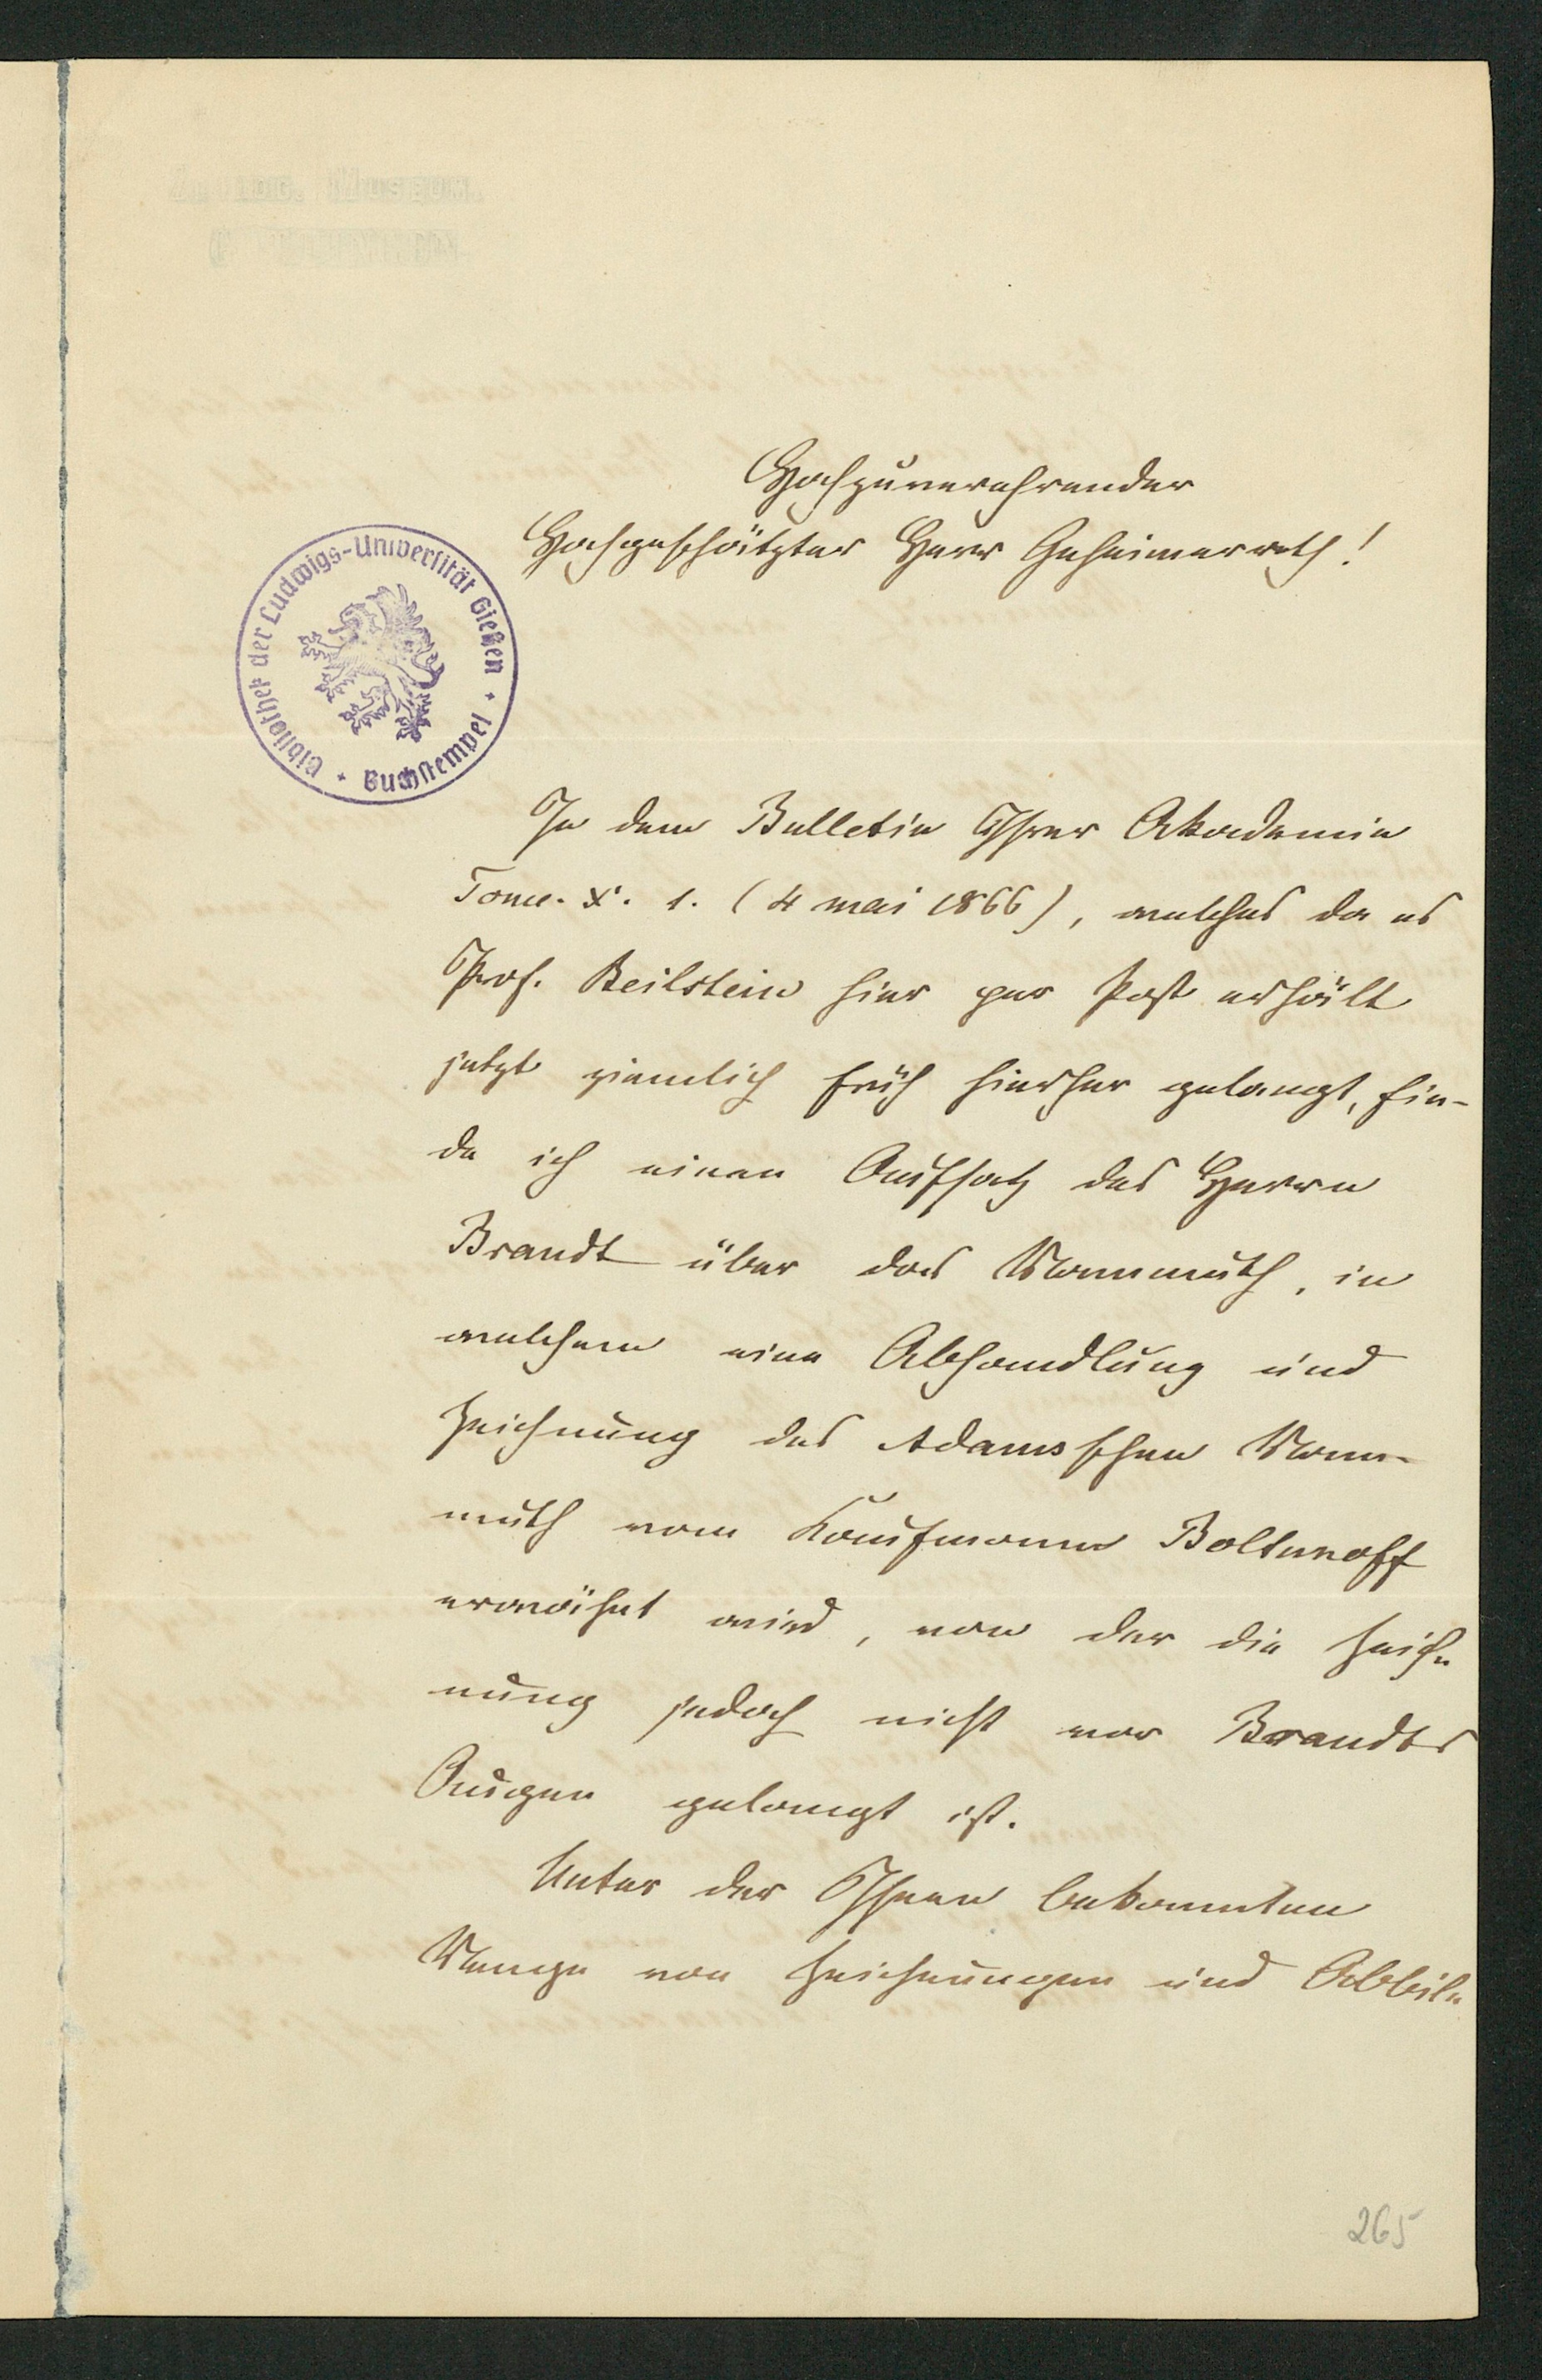 Hochzuverehrender
Hochgeschätzter Herr Geheimerrath!
Bibliothek der Ludwigs-Universität Gießen + Buchstempel +
In dem Bulletin Ihrer Akademie
Tome. X. 1. (4 mai 1866), welches da es
Prof. Beilstein hier per Post erhält
jetzt ziemlich früh hierher gelangt, fin-
de ich einen Aufsatz des Herrn
Brandt über das Mammuth, in
welchem eine Abhandlung und
Zeichnung des Adamsschen Mam-
muth vom Kaufmann Boltunoff
erwähnt wird, von der die Zeich-
nung jedoch nicht vor Brandts
Augen gelangt ist.
Unter der Ihnen bekannten
Menge von Zeichnungen und Abbil-
265